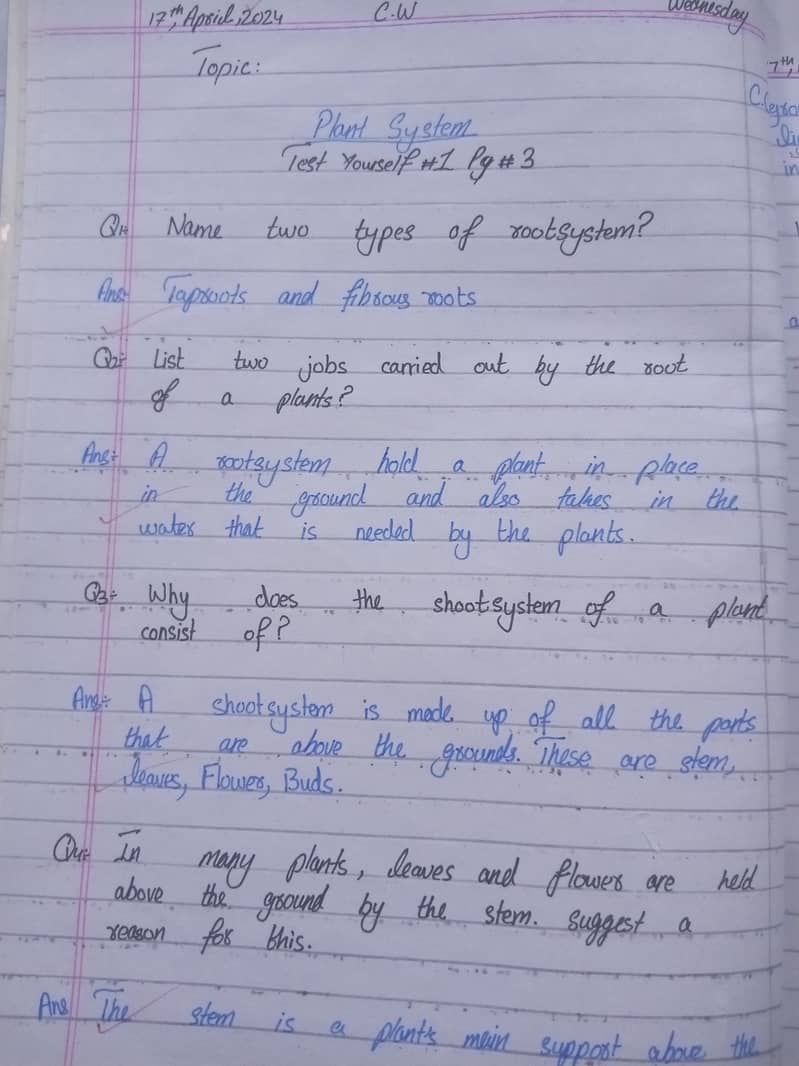 17th, April, 2024 C.W Wednesday
Topic:
Plant System
Test Yourself #1 Pg #3
Q1:- Name two types of rootsystem?
Ans:- Taproots and fibrous roots
Q2:- List two jobs carried out by the root
of a plants?
Ans:- A rootsystem hold a plant in place
in the ground and also takes in the
water that is needed by the plants.
Q3:- Why does the shootsystem of a plant
consist of?
Ans:- A shootsystem is made up of all the parts
that are above the grounds. These are stem,
leaves, Flower, Buds.
Q4:- In many plants, leaves and flower are held
above the ground by the stem. suggest a
reason for this.
Ans The stem is a plant's main support above the
7th,
in
a